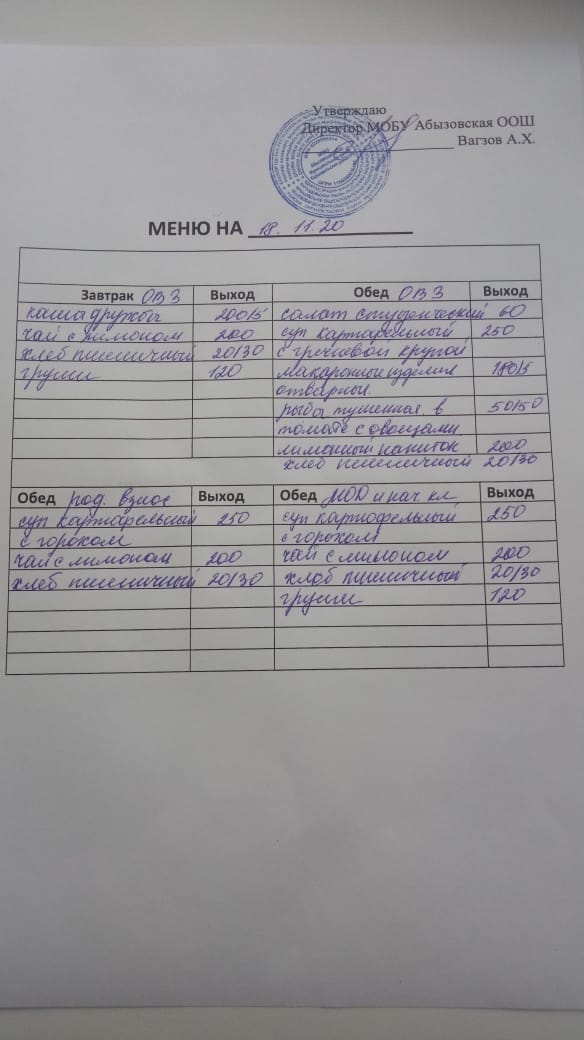 Утверждаю
Директор МОБУ Абызовская ООШ
Вагзов А.Х.
МЕНЮ НА 18. 11. 20
Завтрак ОВЗ Выход Обед ОВЗ Выход
каша дружба 200/5 салат студенческий 60
чай с лимоном 200 суп картофельный 250
хлеб пшеничный 20/30 с гречневой крупой
груши 120 макаронные изделия 180/5
отварные.
рыба тушенная в 50/50
томате с овощами
лимонный напиток 200
хлеб пшеничный 20/30
Обед род. взнос Выход Обед МОД и нач кл Выход
суп картофельный 250 суп картофельный 250
с горохом с горохом
чай с лимоном 200 чай с лимоном 200
хлеб пшеничный 20/30 хлеб пшеничный 20/30
груши 120